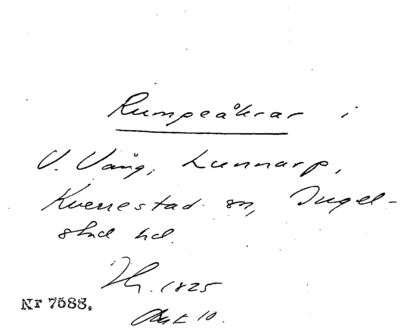 Rumpeåkrar i
V. Vång, Lunnarp,
Kverrestad sn, Ingel-
stad hd.
1825
Akt 10.
Nr 7588.